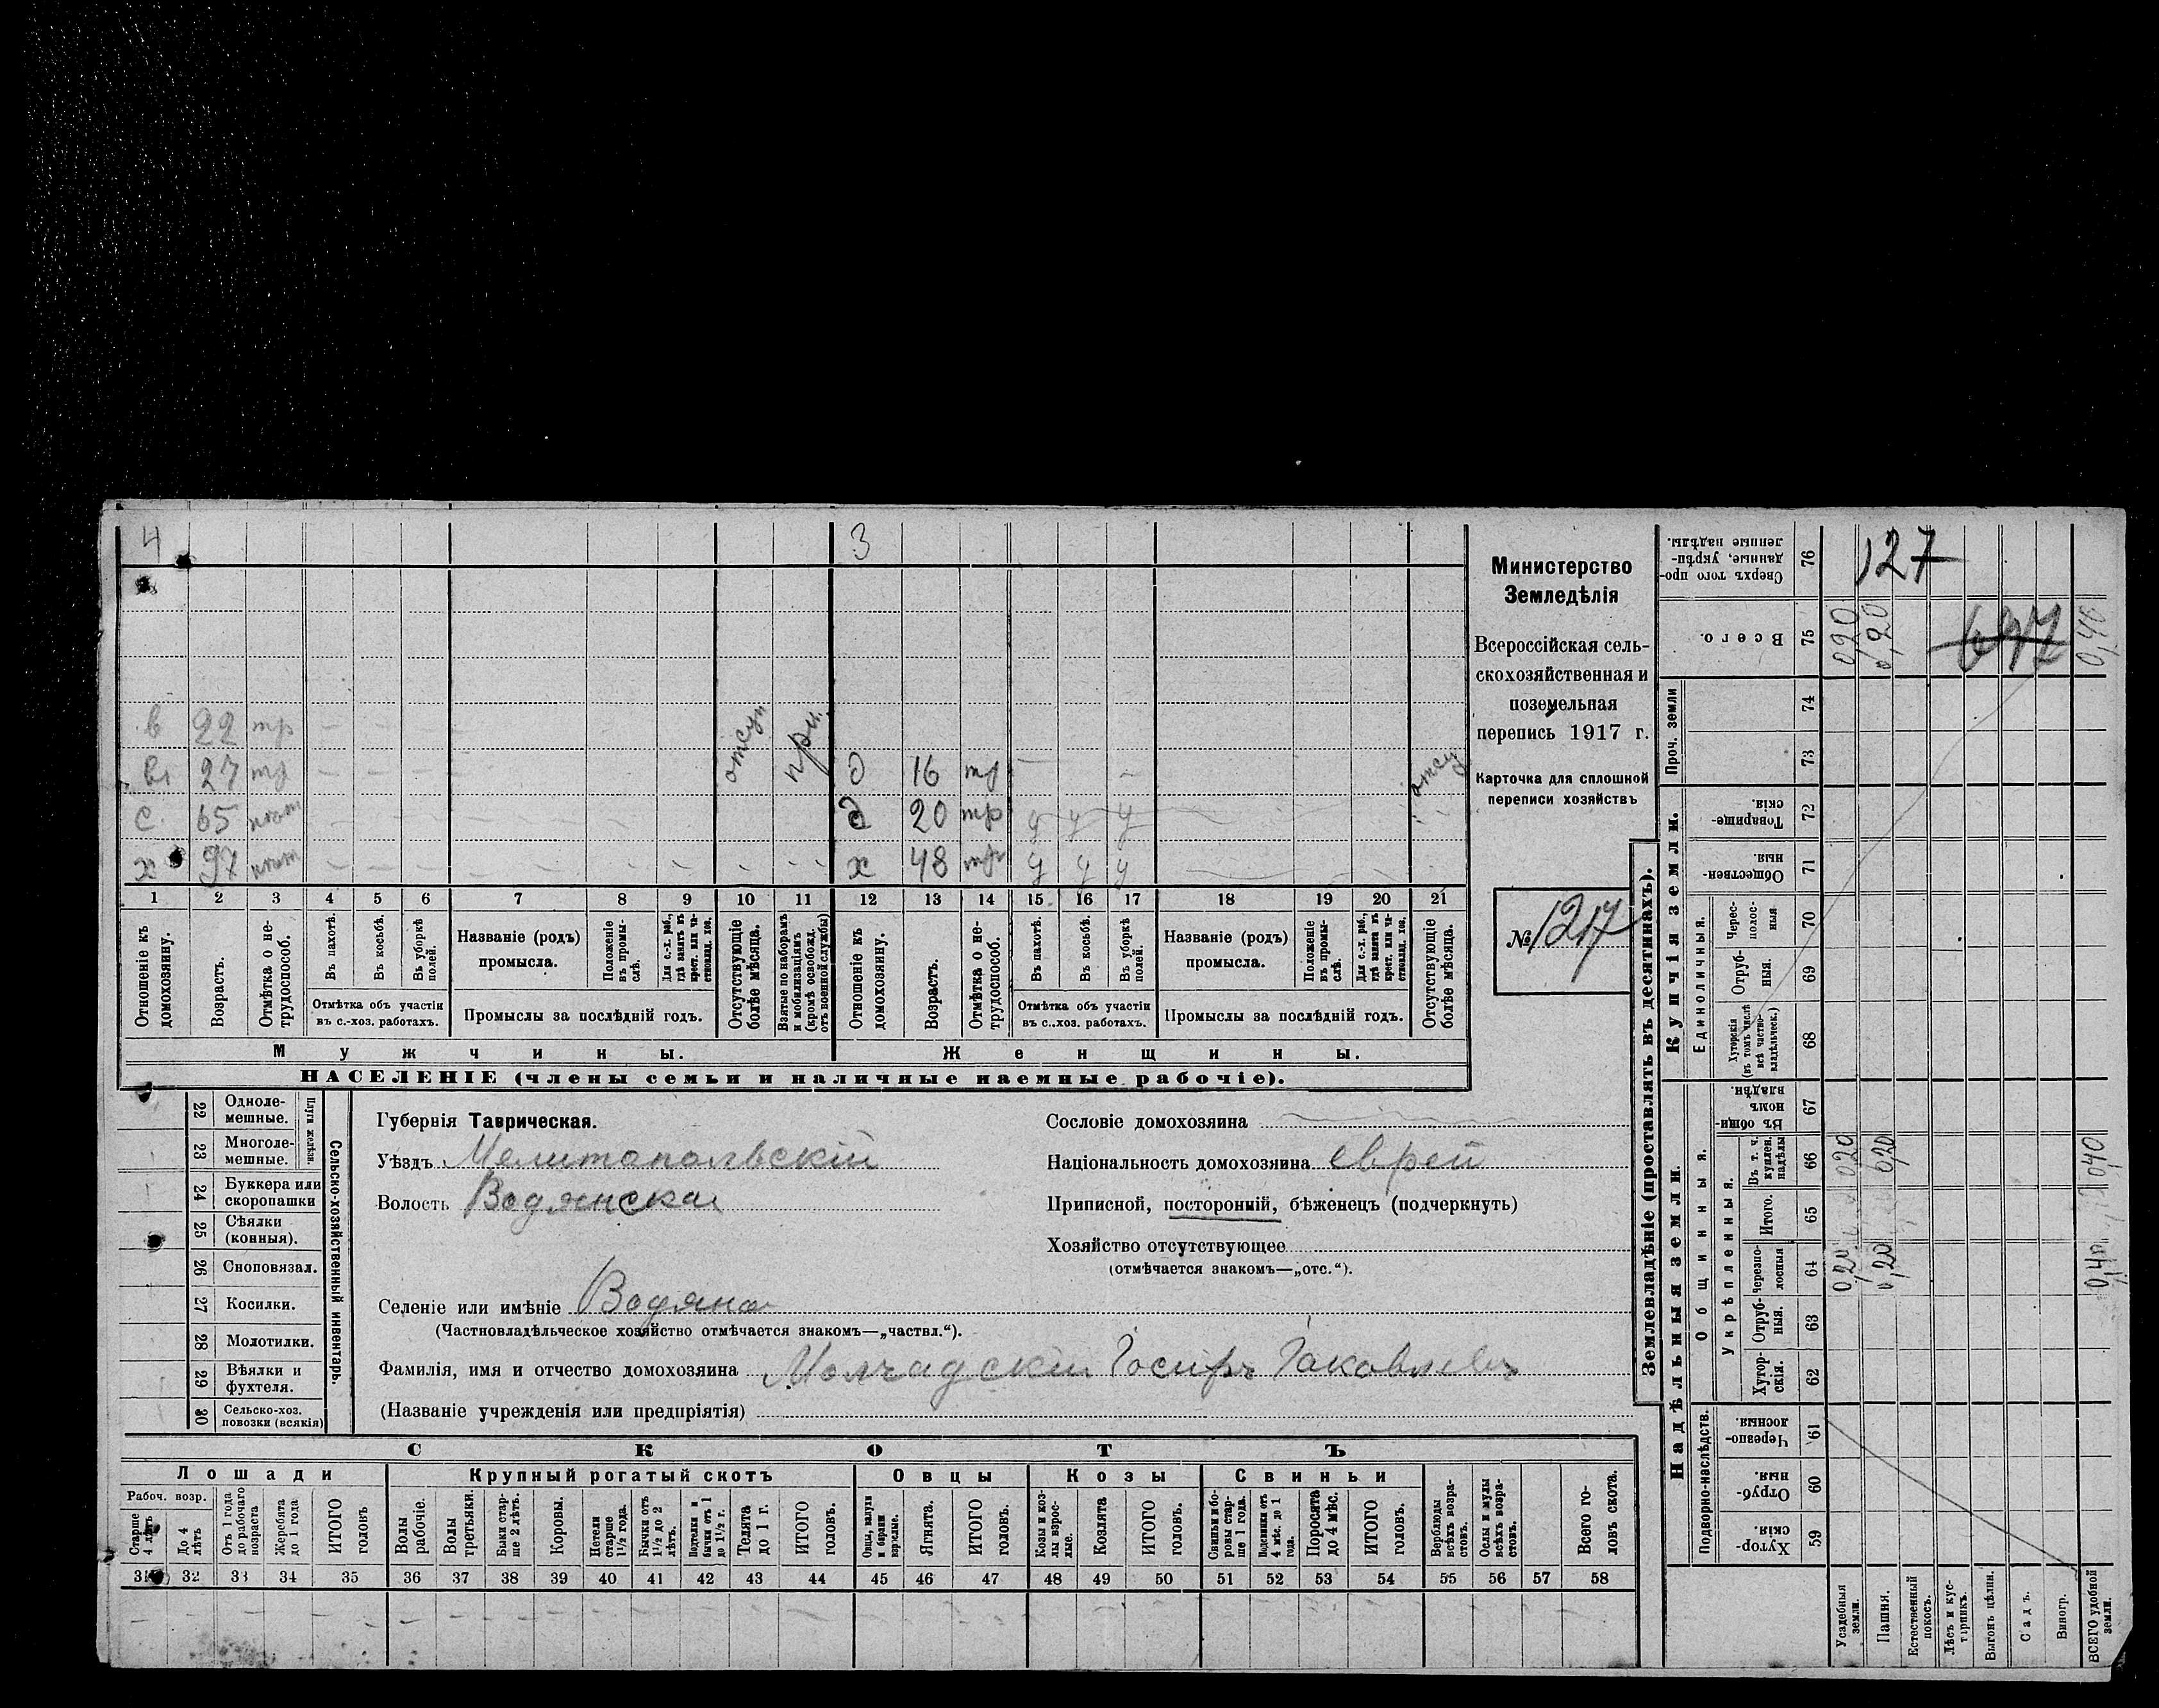 4
3
в 22 тр
отсут
при.
вт 27 тр
д 16 тр
отсут
с. 65
д 20 тр у у у
х 97
х 48 тр у у у
1 2 3 4 5 6 7 8 9 10 11 12 13 14 15 16 17 18 19 20 21
Отношеніе къ домохозяину.
Возрастъ.
Отмѣтка о не-трудоспособ.
Въ пахотѣ.
Въ косьбѣ.
Въ уборкѣ полей.
Отмѣтка объ участіи
въ с.-хоз. работахъ.
Названіе (родъ)
промысла.
Положеніе въ промы-слѣ.
Для с.-х. раб., гдѣ занятъ въ крест. или ча-стновлад. хоз.
Промыслы за послѣдній годъ.
Отсутствующіе болѣе мѣсяца.
Взятые по наборамъ и мобилизаціямъ (кромѣ освобожд. отъ военной службы)
Отношеніе къ домохозяину.
Возрастъ.
Отмѣтка о не-трудоспособ.
Въ пахотѣ.
Въ косьбѣ.
Въ уборкѣ полей.
Отмѣтка объ участіи
въ с.-хоз. работахъ.
Названіе (родъ)
промысла.
Положеніе въ промы-слѣ.
Для с.-х. раб., гдѣ занята въ крест. или ча-стновлад. хоз.
Промыслы за послѣдній годъ.
Отсутствующіе болѣе мѣсяца.
Мужчины.
Женщины.
НАСЕЛЕНІЕ (члены семьи и наличные наемные рабочіе).
Министерство
Земледѣлія
Всероссійская сель-
скохозяйственная и
поземельная
перепись 1917 г.
Карточка для сплошной
переписи хозяйствъ
№ 1217
22 Одноле-мешные.
23 Многоле-мешные.
Плуги желѣзн.
24 Буккера или скоропашки
25 Сѣялки (конныя).
26 Сноповязал.
27 Косилки.
28 Молотилки.
29 Вѣялки и фухтеля.
30 Сельско-хоз. повозки (всякія)
Сельско-хозяйственный инвентарь.
Губернія Таврическая.
Уѣздъ Мелитопольскій
Волость Водянская
Селеніе или имѣніе Водяное
(Частновладѣльческое хозяйство отмѣчается знакомъ—„частвл.“).
Фамилія, имя и отчество домохозяина Молчадскій Іосифъ Яковлев
(Названіе учрежденія или предпріятія)
Сословіе домохозяина
Національность домохозяина еврей
Приписной, посторонній, бѣженецъ (подчеркнуть)
Хозяйство отсутствующее
(отмѣчается знакомъ—„отс.“).
СКОТЪ
Лошади
Крупный рогатый скотъ
Овцы
Козы
Свиньи
Рабоч. возр.
Старше 4 лѣтъ
До 4 лѣтъ
Отъ 1 года до рабочаго возраста
Жеребята до 1 года
ИТОГО головъ
Волы рабочіе.
Волы третьяки.
Быки стар-ше 2 лѣтъ.
Коровы.
Нетели старше 1½ года.
Бычки отъ 1½ до 2 лѣтъ.
Подтелки и бычки отъ 1 до 1½ г.
Телята до 1 г.
ИТОГО головъ.
Овцы, валухи и бараны взрослые.
Ягнята.
ИТОГО головъ.
Козы и коз-лы взрос-лые.
Козлята
ИТОГО головъ.
Свиньи и бо-ровы стар-ше 1 года.
Подсвинки отъ 4 мѣс. до 1 года.
Поросята до 4 мѣс.
ИТОГО головъ.
Верблюды всѣхъ возра-стовъ.
Ослы и мулы всѣхъ возра-стовъ.
Всего го-ловъ скота.
31 32 33 34 35 36 37 38 39 40 41 42 43 44 45 46 47 48 49 50 51 52 53 54 55 56 57 58
Землевладѣніе (проставлять въ десятинахъ).
Надѣльныя земли.
Купчія земли.
Проч. земли
Подворно-наслѣдств.
Общинныя.
Укрѣпленныя.
Единоличныя.
Сверхъ того про-данные, укрѣп-ленные надѣлы. 76 127
Всего. 75 0,20 0,20 647 0,40
74
73
Товарище-скія. 72
Обществен-ныя. 71
Черес-полос-ныя 70
Отруб-ныя. 69
Хуторскія (въ томъ числѣ всѣ частно-владѣльческ.) 68
Въ общин-номъ владѣн. 67
Въ т. ч. куплен. надѣлы 66 0,20 0,20 0,40
Итого. 65
Черезпо-лосныя 64 0,20 0,20 0,40
Отруб-ныя. 63
Хутор-скія. 62
Черезпо-лосныя. 61
Отруб-ныя. 60
Хутор-скія. 59
Усадебныя земли.
Пашня.
Естественный покосъ.
Лѣсъ и кус-тарникъ.
Выгонъ цѣлин.
Садъ.
Виногр.
ВСЕГО удобной земли.